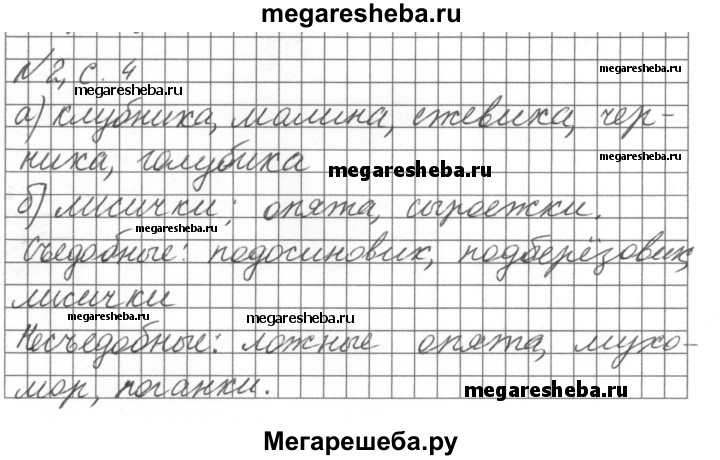 megaresheba.ru
№2, с. 4
megaresheba.ru
megaresheba.ru
а) клубника, малина, ежевика, чер-
ника, голубика
megaresheba.ru
megaresheba.ru
б) лисички; опята, сыроежки.
megaresheba.ru
Съедобные: подосиновик, подберёзовик,
лисички
megaresheba.ru
megaresheba.ru
Несъедобные: ложные опята, мухо-
мор, поганки.
megaresheba.ru
Мегарешеба.ру